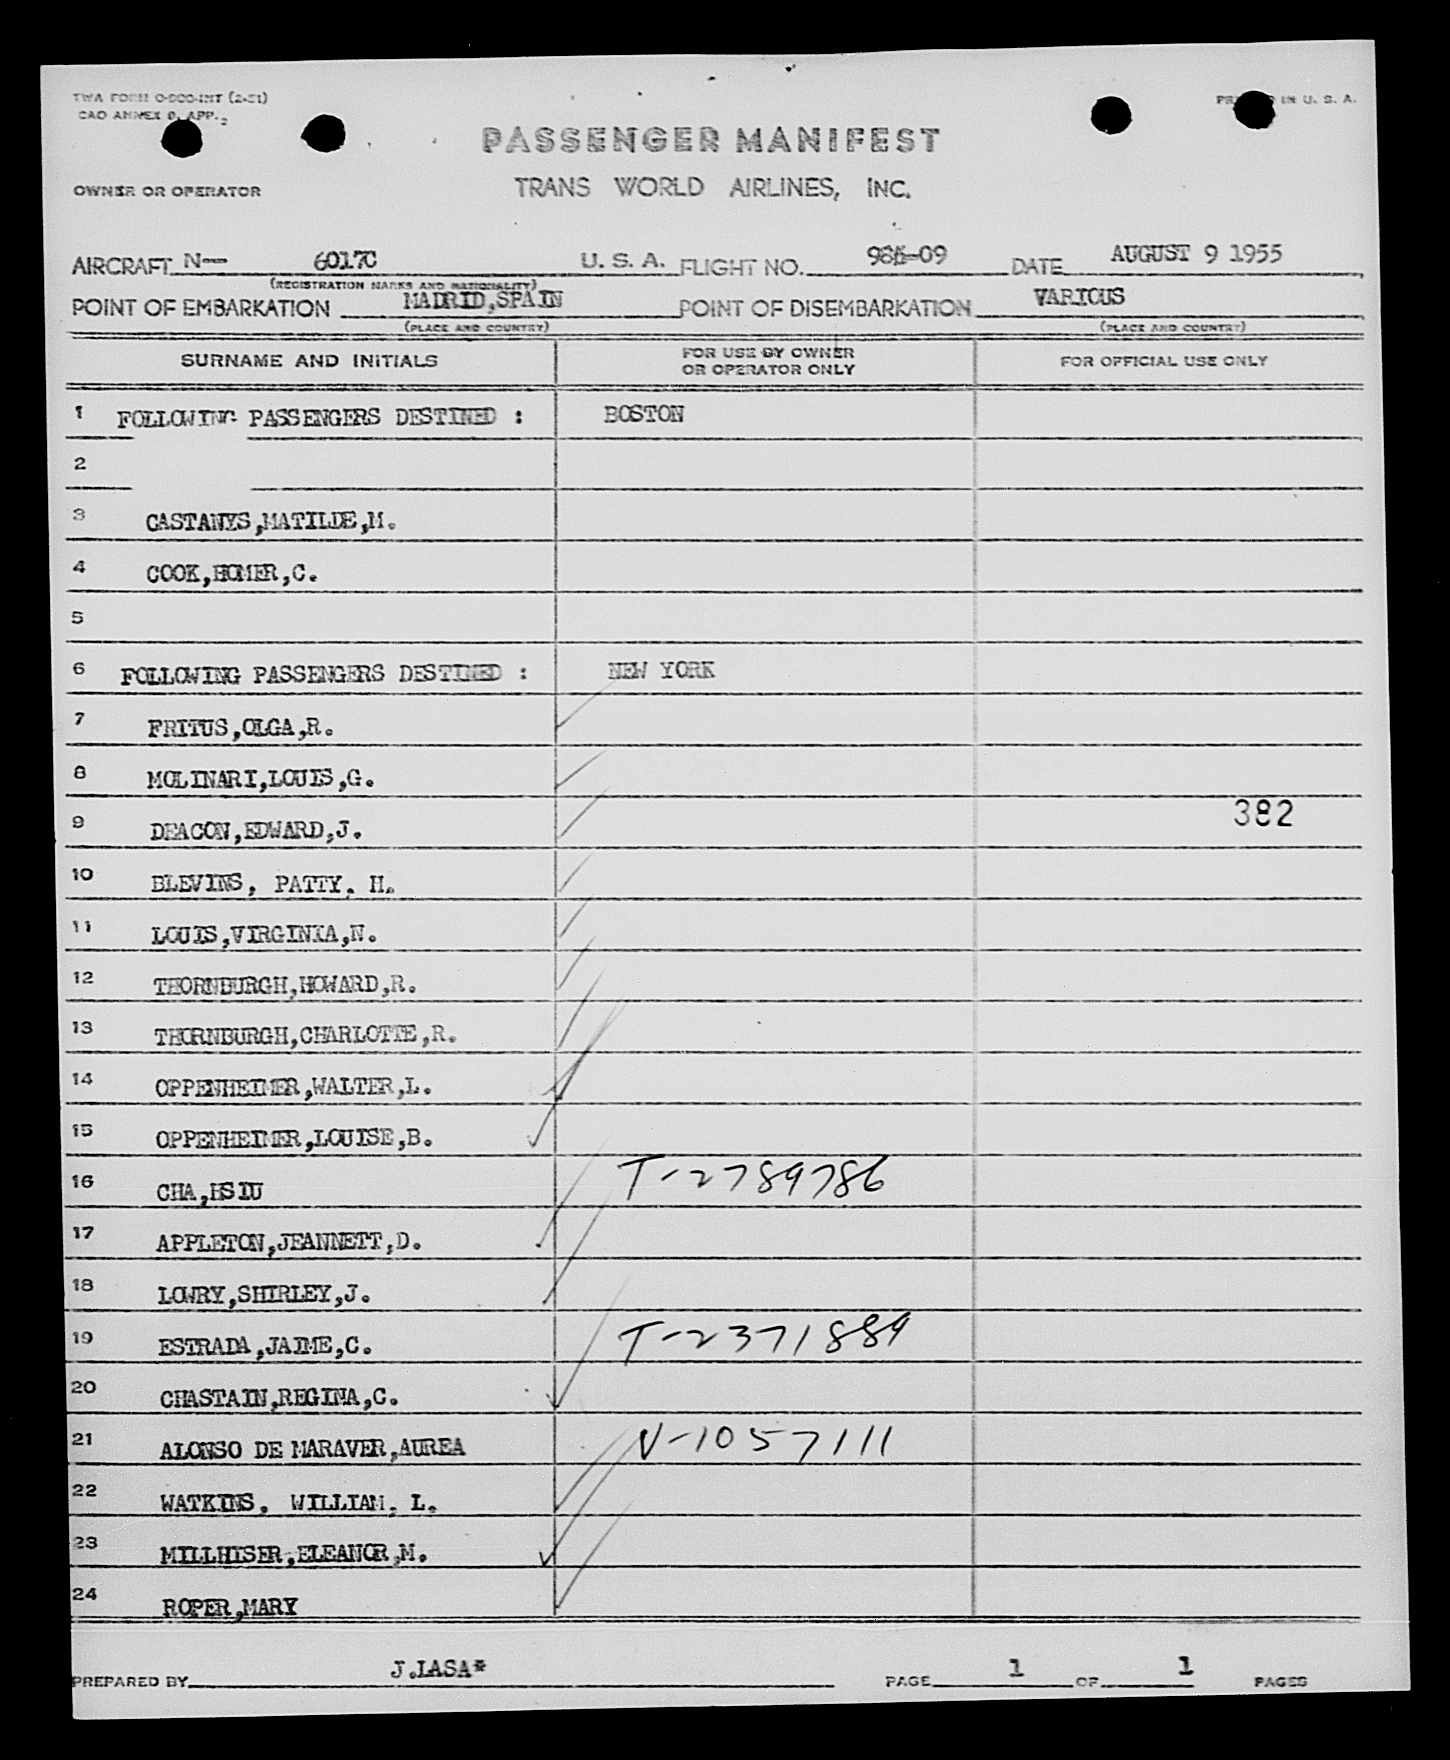 TWA FORM O-800-INT (2-51)
CAO ANNEX 9, APP. 2
PRINTED IN U. S. A.
PASSENGER MANIFEST
OWNER OR OPERATOR TRANS WORLD AIRLINES, INC.
AIRCRAFT N-- 6017C U. S. A. FLIGHT NO. -09 DATE AUGUST 9 1955
(REGISTRATION MARKS AND NATIONALITY)
POINT OF EMBARKATION MADRID,SPAIN POINT OF DISEMBARKATION VARIOUS
(PLACE AND COUNTRY) (PLACE AND COUNTRY)
SURNAME AND INITIALS FOR USE BY OWNER OR OPERATOR ONLY FOR OFFICIAL USE ONLY
1 FOLLOWING PASSENGERS DESTINED : BOSTON
2
3 CASTANYS,MATILDE,M.
4 COOK,HOMER,C.
5
6 FOLLOWING PASSENGERS DESTINED : NEW YORK
7 FRITUS,OLGA,R.
8 MOLINARI,LOUIS,G.
9 DEACON,EDWARD,J. 382
10 BLEVINS, PATTY, H.
11 LOUIS,VIRGINIA,N.
12 THORNBURGH,HOWARD,R.
13 THORNBURGH,CHARLOTTE,R.
14 OPPENHEIMER,WALTER,L.
15 OPPENHEIMER,LOUISE,B.
16 CHA,HSIU T-2789786
17 APPLETON,JEANNETT,D.
18 LOWRY,SHIRLEY,J.
19 ESTRADA,JAIME,C. T-2371889
20 CHASTAIN,REGINA,C.
21 ALONSO DE MARAVER,AUREA V-1057111
22 WATKINS, WILLIAM, L.
23 MILLHISER,ELEANOR,M.
24 ROPER,MARY
PREPARED BY J.LASA* PAGE 1 OF 1 PAGES